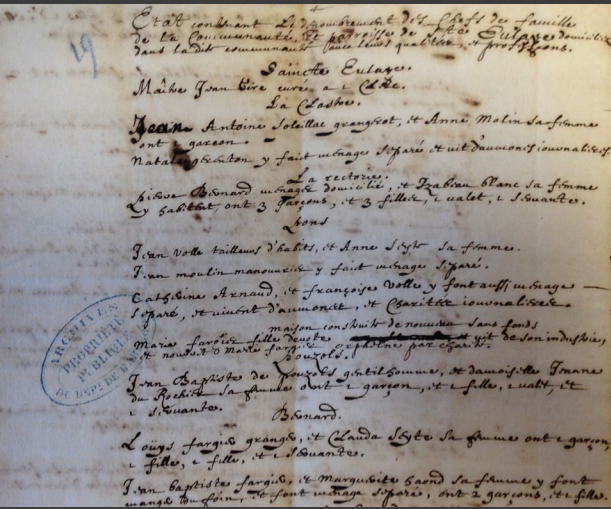 19
Etat contenant Le denombrement des Chefs de famille
de la Communauté, et parroisse de Ste Eulaye domiciliés
dans ladite communauté leurs qualités, et professions.
Saincte Eulaye.
Maitre Jean curé a 1 Clerc.
La Clastre.
Jean Antoine Soleillac grangeot, et Anne Molin sa femme
ont 1 garcon.
y fait menage separé et vit d'aumones iournalieres
La rectorie.
Pierre Bernard menager domicilié, et Izabeau blanc sa femme
Ly habittent, ont 3 garçons, et 3 filles, 1 valet, 1 servante.
Lions
Jean volle tailleur d'habits, et Anne Seyte sa femme.
Jean moulin manouvrier y fait menage separé.
Catherine Arnaud, et françoise Volle y font aussy menage
separé, et vivent d'aumones, et Charittés iournalieres
maison construite de nouveau sans fonds
Marie fargier fille devote vit de son industrie,
et nourrit Marie fargier orpheline par charité
Pouzols.
Jean Baptiste de Pouzols gentilhomme, et damoiselle Jeanne
du Rochier sa femme ont 1 garçon, et 1 fille, 1 valet, et
1 servante.
Bernard.
Louys fargier granger, et Clauda Seyte sa femme ont 1 garçon,
1 fille, 1 fille, et 1 servante.
Jean baptiste fargier, et Marguerite sa femme y font
du foin, et font menage separé, ont 2 garçons, et 1 fille.
ARCHIVES
PROPRIÉTÉ
PUBLIQUE
DU DÉPT DE